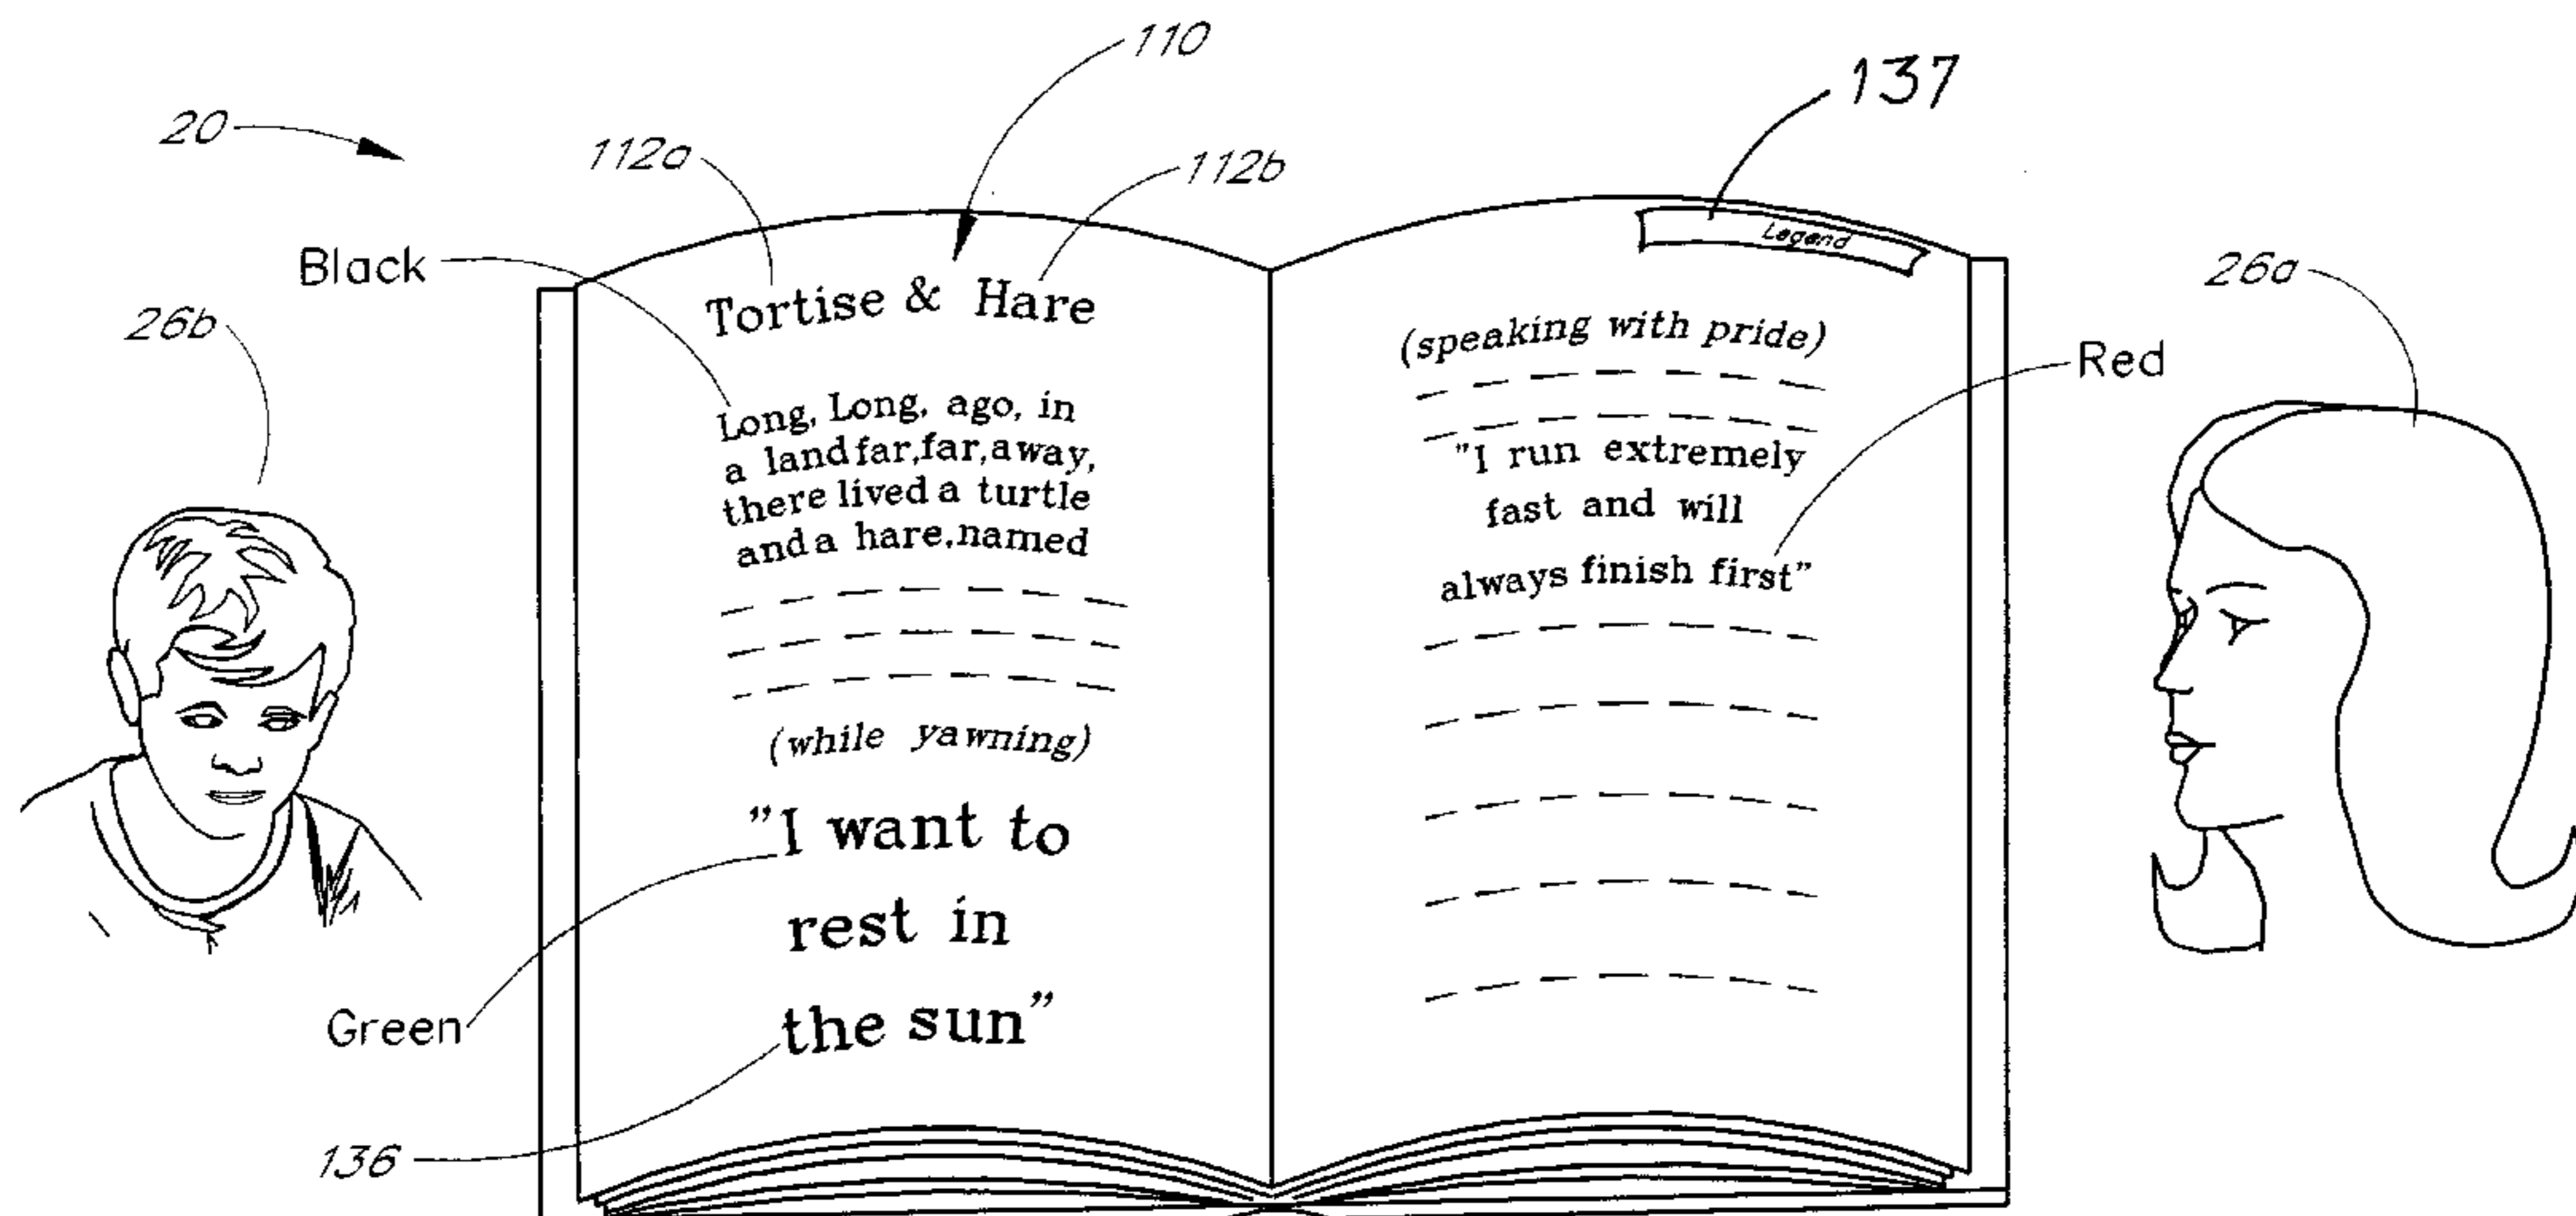 110
137
20
112a
112b
Black
Legend
26a
26b
Tortise & Hare
Long, Long, ago, in
a land far,far,away,
there lived a turtle
and a hare,named
(while yawning)
"I want to
rest in
the sun"
Green
136
(speaking with pride)
Red
"I run extremely
fast and will
always finish first"